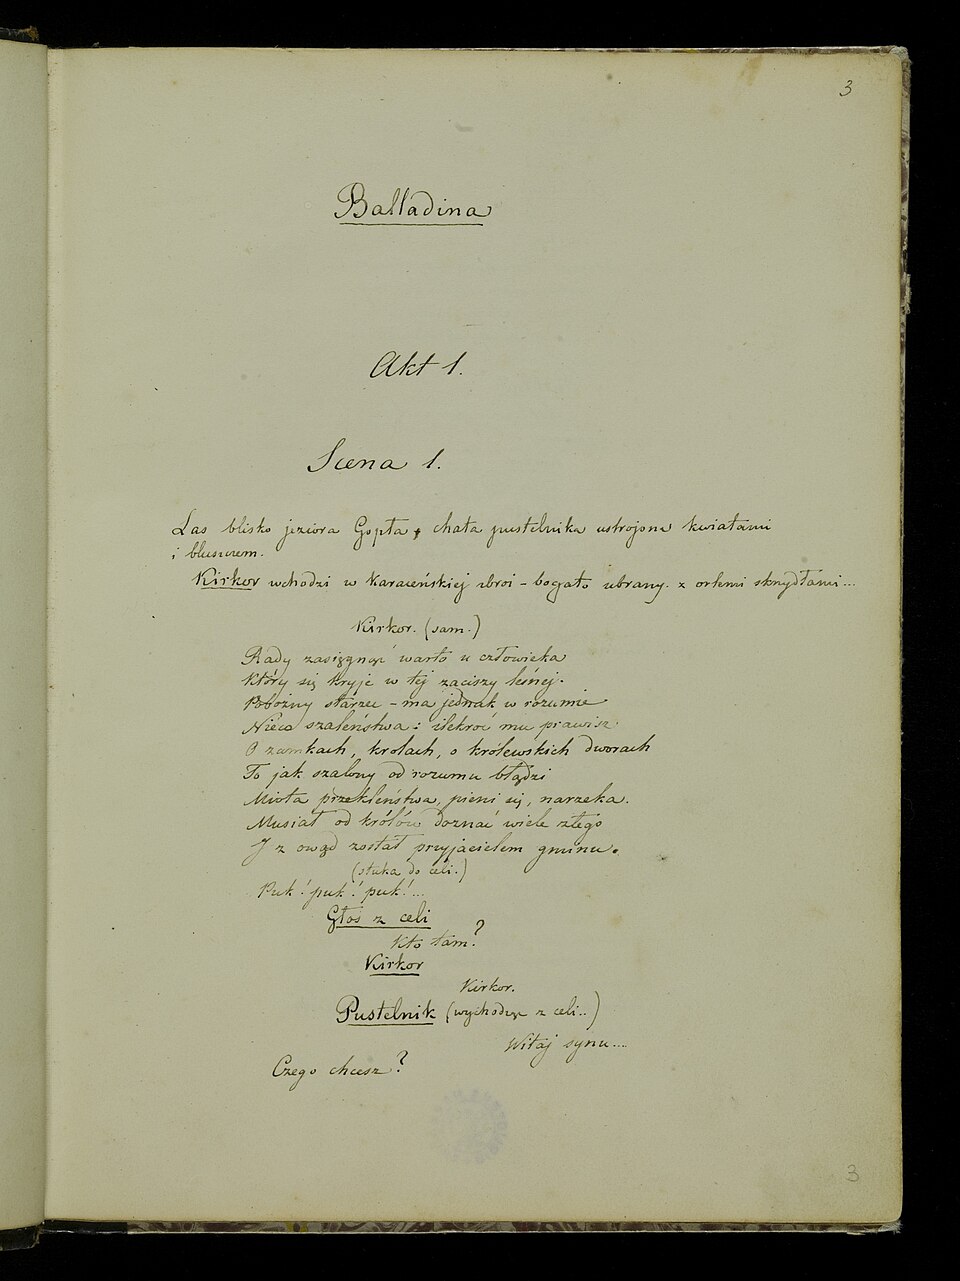 3
Balladina
Akt 1.
Scena 1.
Las blisko jeziora Gopła, chata pustelnika ustrojona kwiatami
i bluszczem.
Kirkor wchodzi w karaceńskiej zbroi – bogato ubrany. z orłemi skrzydłami...
Kirkor. (sam.)
Rady zasięgnąć warto u człowieka
Który się kryje w tej zaciszy leśnej.
Pobożny starzec – ma jednak w rozumie
Nieco szaleństwa: ilekroć mu prawisz
O zamkach, krolach, o królewskich dworach
To jak szalony od rozumu błądzi
Miota przekleństwa, pieni się, narzeka.
Musiał od królów doznać wiele złego
I z owąd został przyjacielem gminu.
(stuka do celi.)
Puk! puk! puk!...
Głos z celi
Kto tam?
Kirkor
Kirkor.
Pustelnik (wychodząc z celi..)
Witaj synu....
Czego chcesz?
3